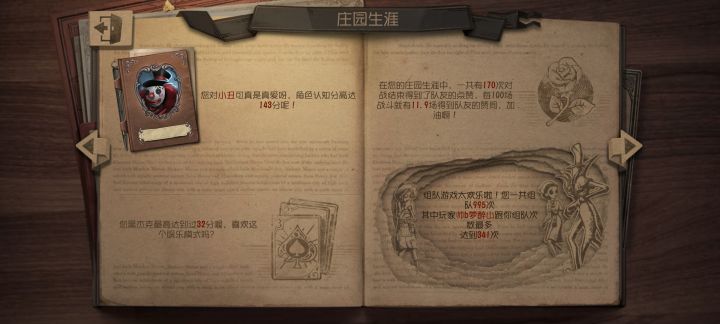 庄园生涯
您对小丑可真是真爱呀，角色认知分高达
143分呢！
您黑杰克最高达到过32分喔，喜欢这
个娱乐模式吗？
在您的庄园生涯中，一共有170次对
战结束得到了队友的点赞，每100场
战斗就有11.9场得到队友的赞同，加
油啊！
组队游戏太欢乐啦！您一共组
队995次
其中玩家 梦醉山跟你组队次
数最多
达到341次